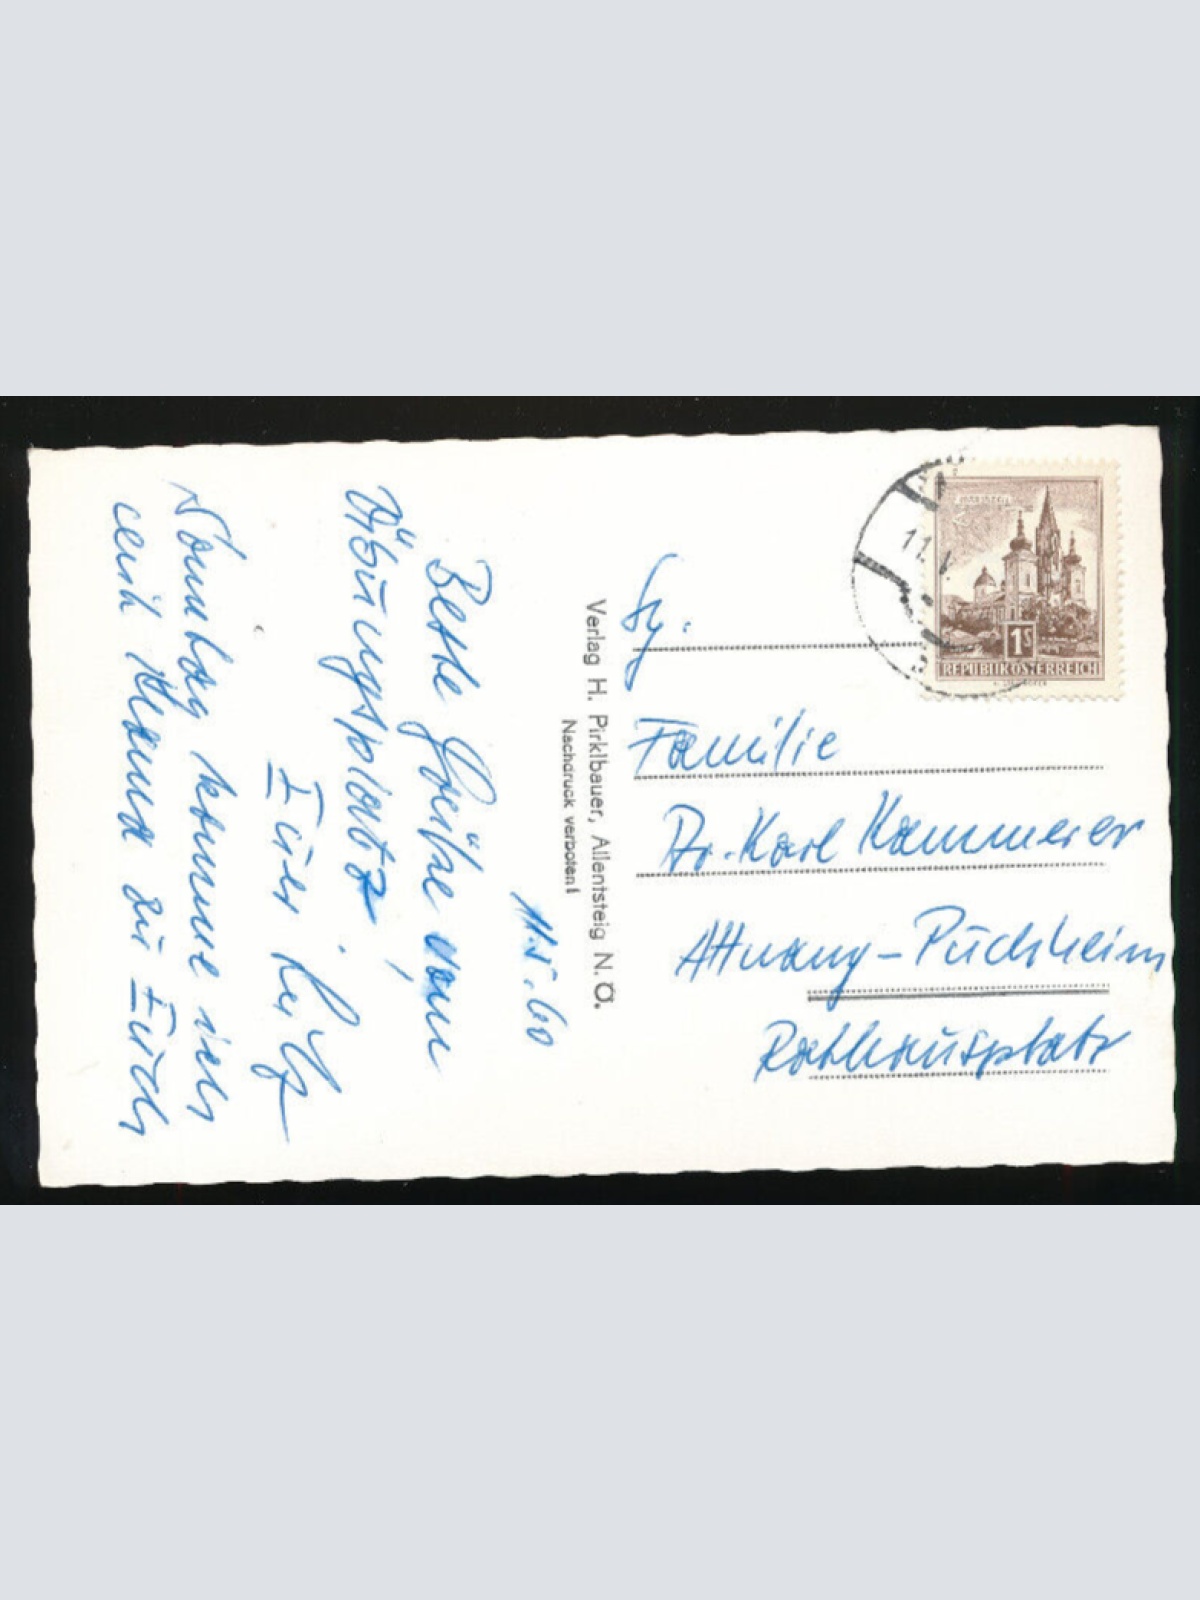 11.5.60
Beste Grüße vom
Übungsplatz!
Euer
Sonntag komme ich
mit Mama zu Euch
Verlag H. Pirklbauer, Allentsteig N. Ö.
Nachdruck verboten!
11. V.
1S
REPUBLIK ÖSTERREICH
Familie
Dr. Karl Kammerer
Attnang-Puchheim
Rathausplatz